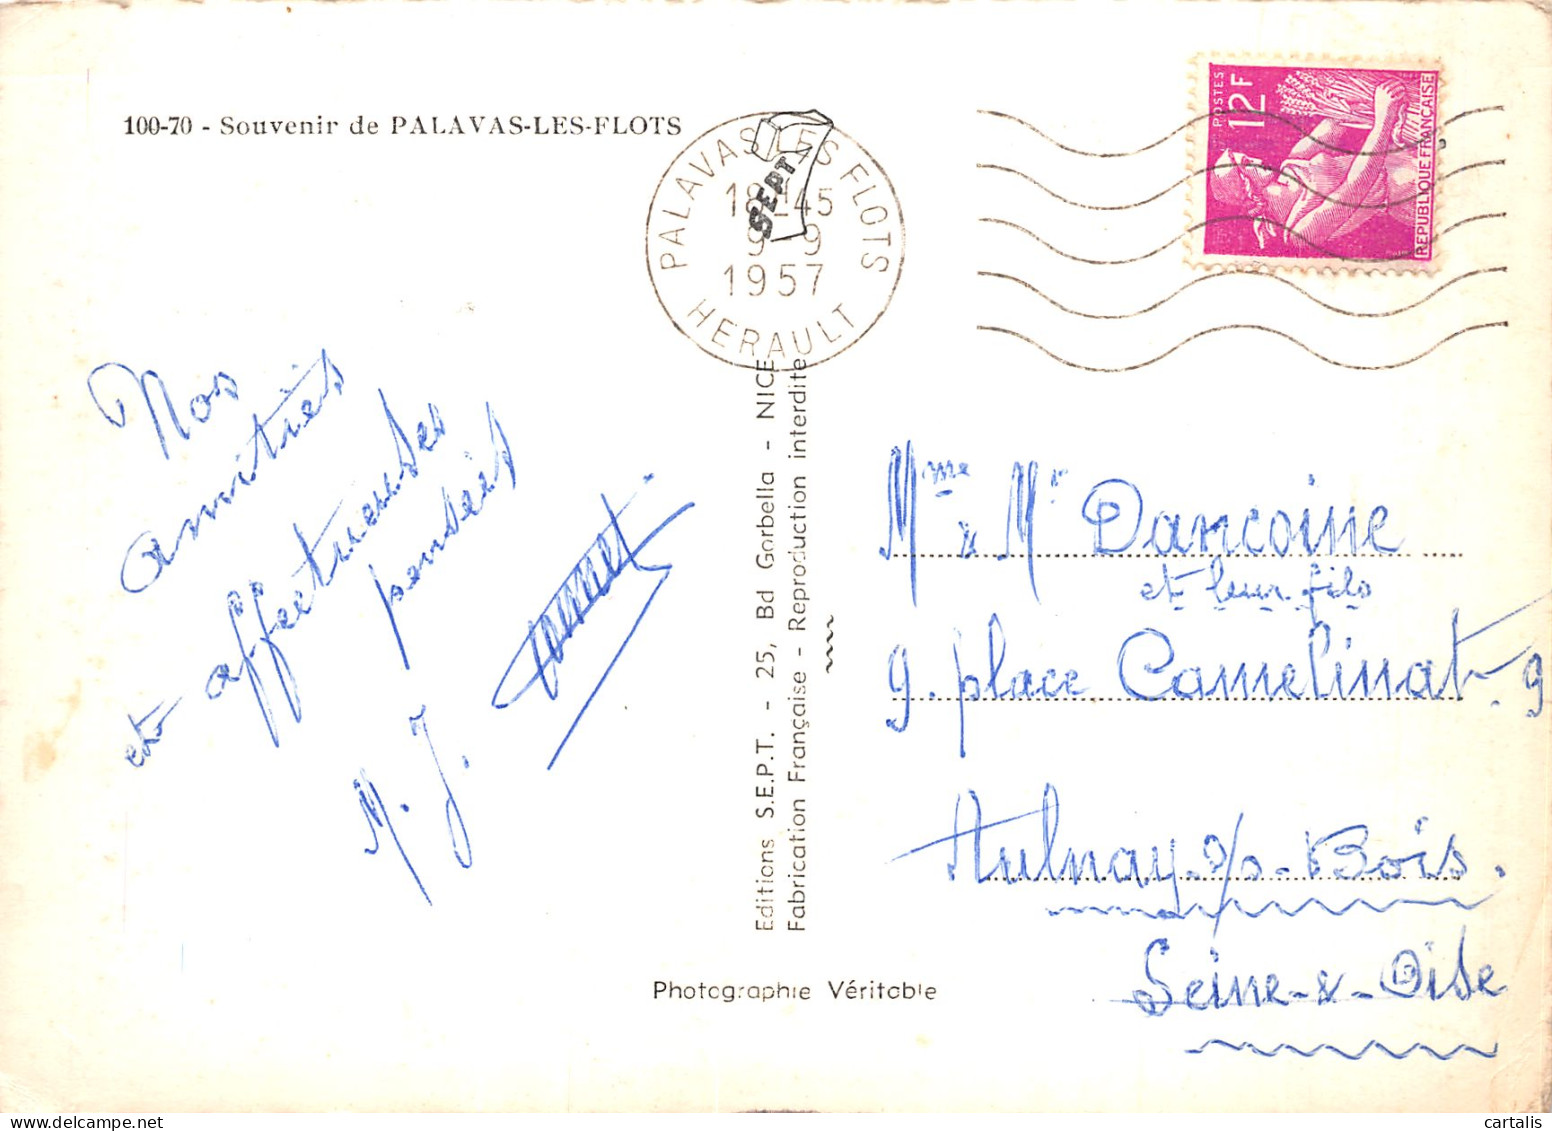 100-70 - Souvenir de PALAVAS-LES-FLOTS
PALAVAS LES FLOTS
18 45
9-9
1957
HERAULT
SEPT
POSTES
12F
REPUBLIQUE FRANÇAISE
Nos
amitiés
et affectueuses
pensées
M. J.
Editions S.E.P.T. - 25, Bd Gorbella - NICE
Fabrication Française - Reproduction interdite
Mme & Mr Dancoine
et leur fils
9. place Camelinat. 9
Aulnay-s/s-Bois.
Seine-&-Oise
Photographie Véritable
cartalis